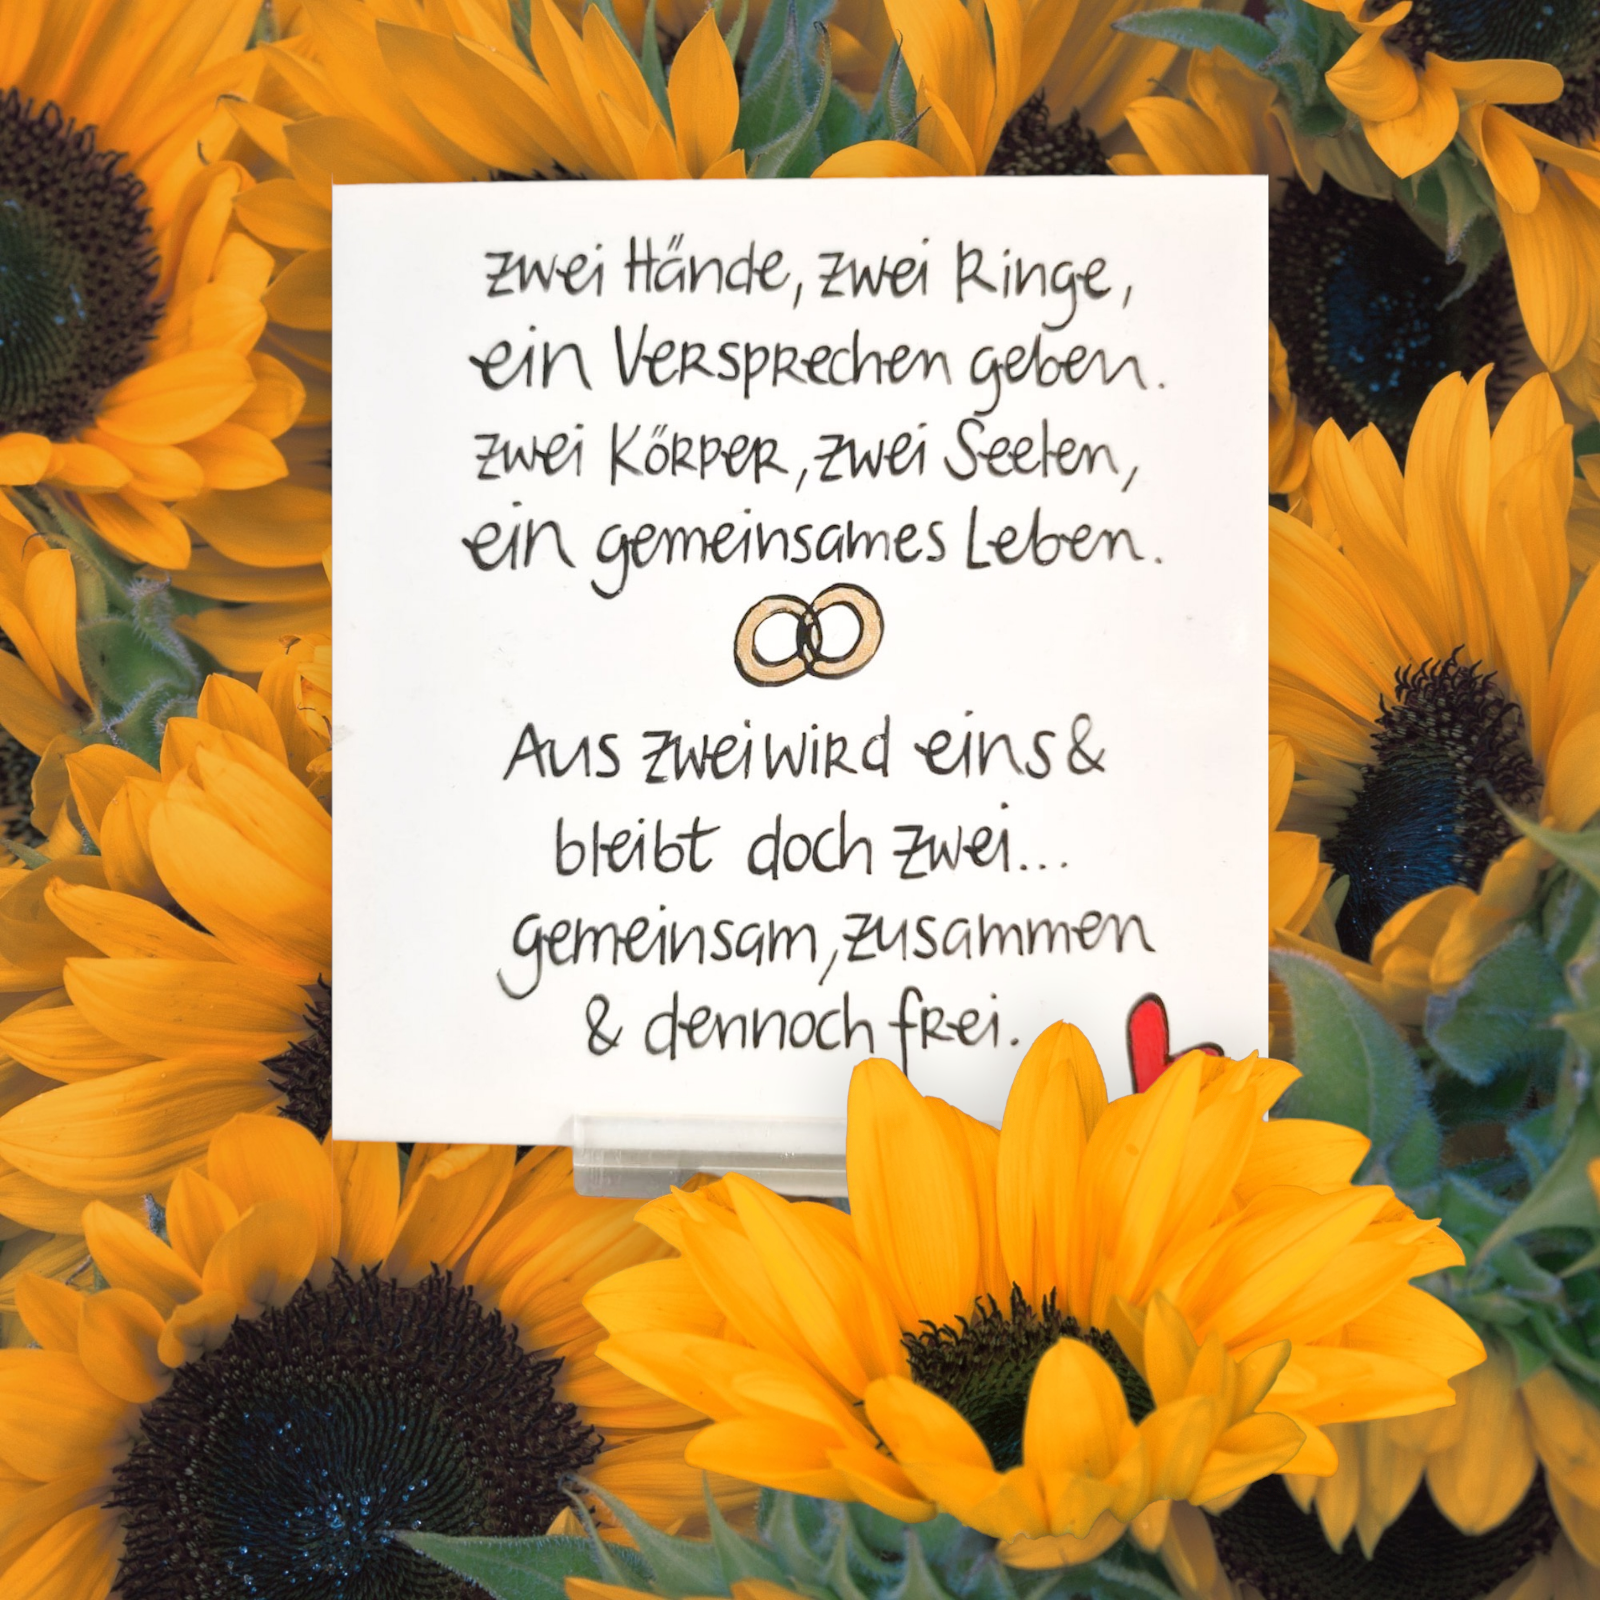 zwei Hände, zwei Ringe,
ein Versprechen geben.
zwei Körper, zwei Seelen,
ein gemeinsames Leben.
Aus zwei wird eins &
bleibt doch zwei...
gemeinsam, zusammen
& dennoch frei.